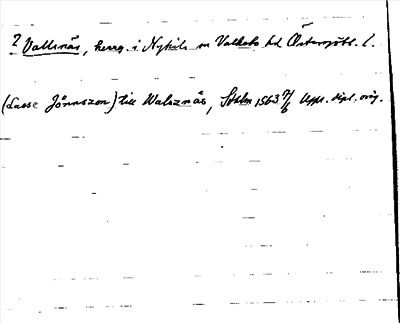 ? Vallsnäs, herrg. i Nykils sn Valkebo hd Östergötl. l.
(Lasse Jönsszon) till Walsznäs, Sthlm 1563 7/6 Uppl. dipl. orig.